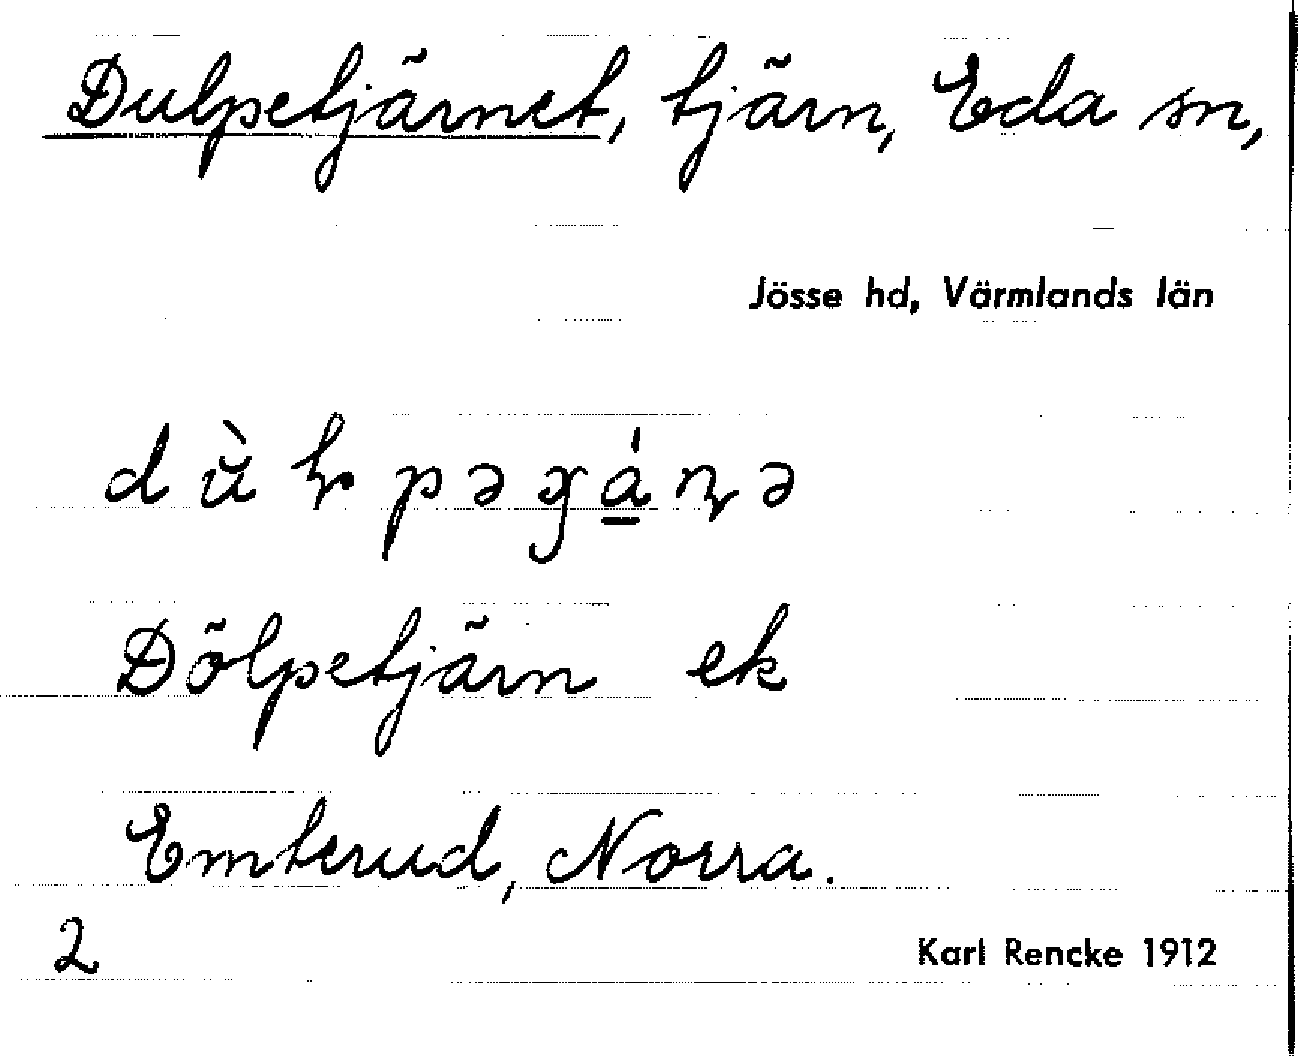 Dulpetjärnet, tjärn, Eda sn,
Jösse hd, Värmlands län
Dölpetjärn ek
Emterud, Norra.
2
Karl Rencke 1912